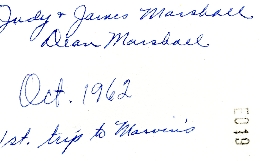 Judy & James Marshall
Dean Marshall
Oct. 1962
1st. trip to Marvin's